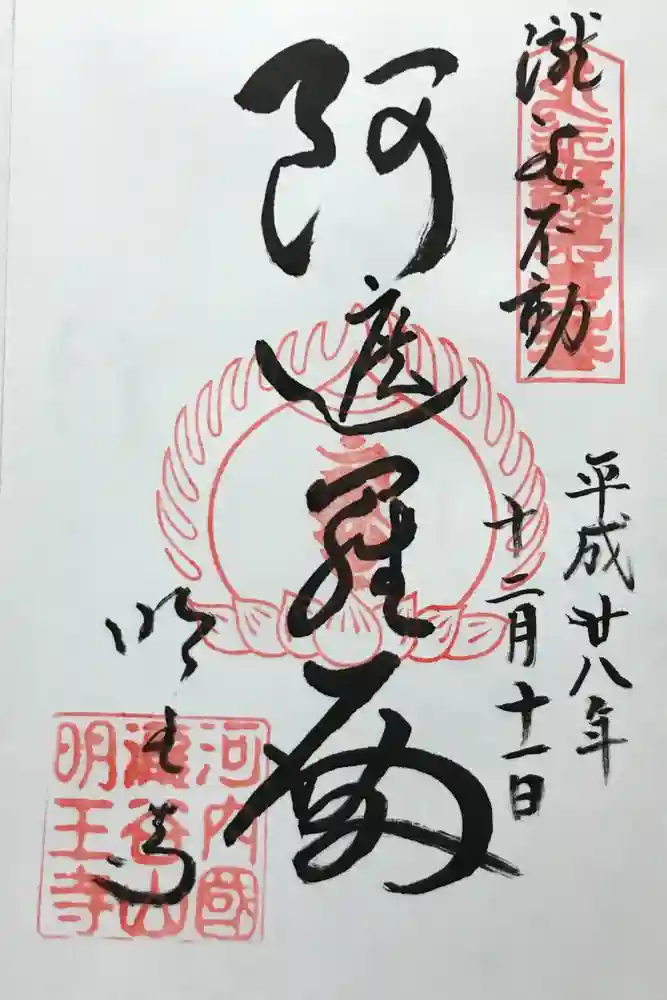 瀧谷不動
平成廿八年
十二月十一日
阿遮羅
明王寺
河内國
瀧谷山
明王寺